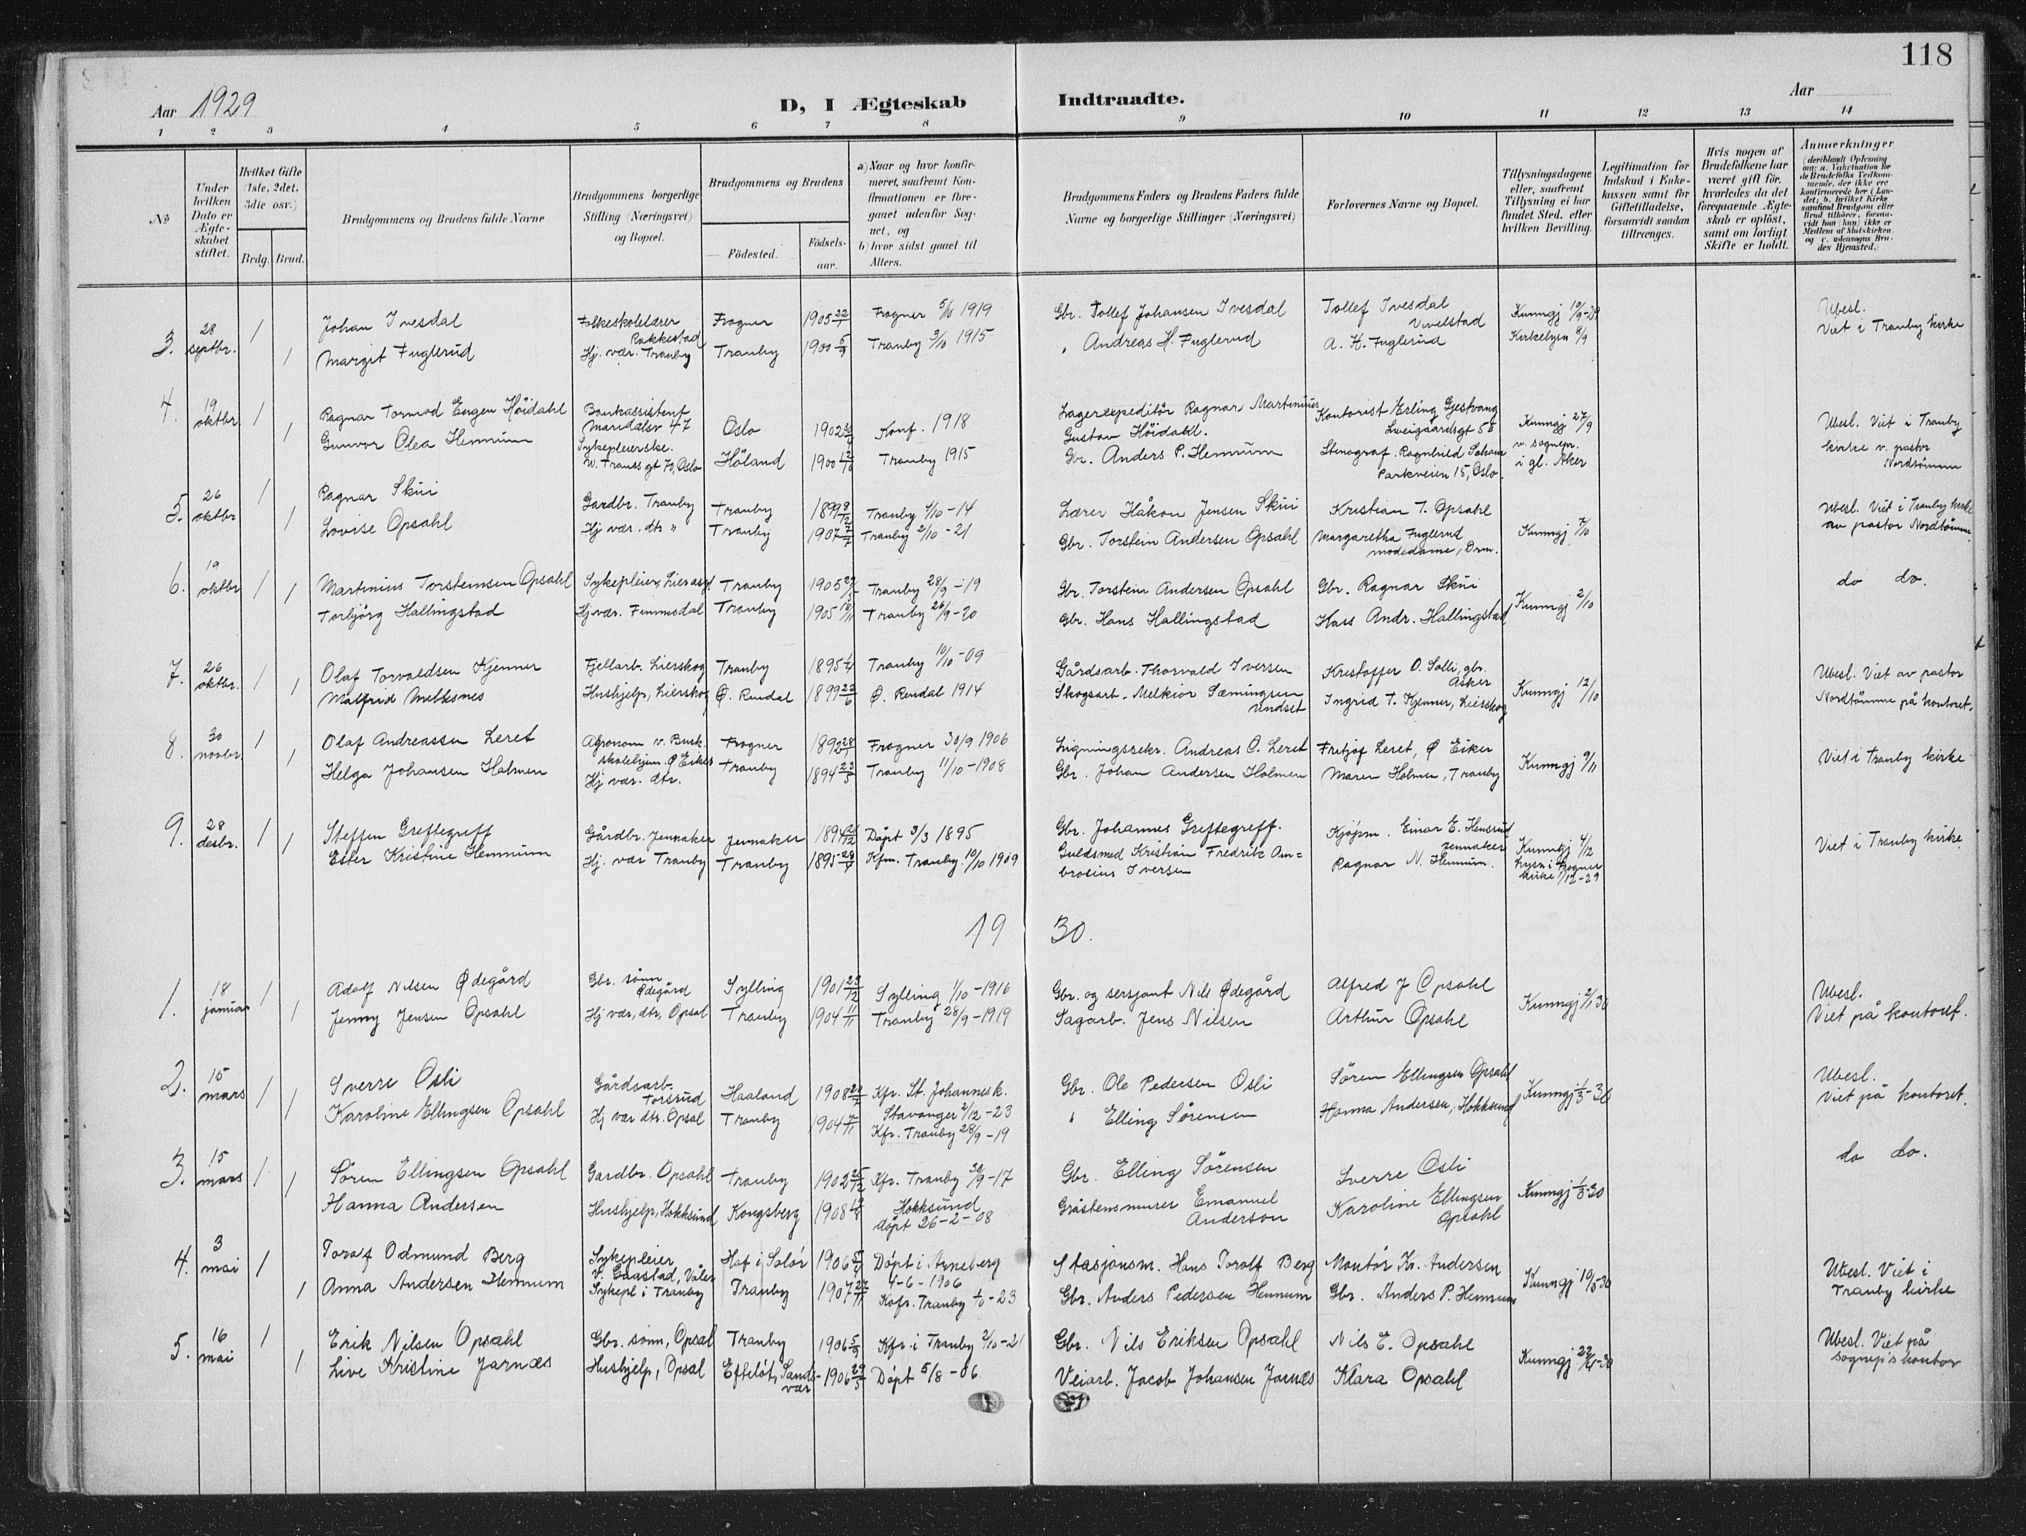 118
Aar 1929
D, I Ægteskab Indtraadte.
Aar
1 2 3 4 5 6 7 8 9 10 11 12 13 14
No
Under hvilken Dato er Ægte-skabet stiftet.
Hvilket Gifte (1ste, 2det, 3die osv.)
Brdg. Brud.
Brudgommens og Brudens fulde Navne
Brudgommens borgerlige Stilling (Næringsvei) og Bopæl.
Brudgommens og Brudens
Fødested. Fødsels-aar.
a) Naar og hvor konfir-meret, saafremt Kon-firmationen er fore-gaaet udenfor Sog-net, og
b) hvor sidst gaaet til Alters.
Brudgommens Faders og Brudens Faders fulde Navne og borgerlige Stillinger (Næringsvei)
Forlovernes Navne og Bopæl.
Tillysningsdagene eller, saafremt Tillysning ei har fundet Sted, efter hvilken Bevilling.
Legitimation for Indskud i Enke-kassen samt for Giftetilladelse, forsaavidt saadan tiltrænges.
Hvis nogen af Brudefolkene har været gift før, hvorledes da det foregaaende Ægte-skab er opløst, samt om lovligt Skifte er holdt.
Anmærkninger
3. 28 septbr. 1 Johan Ivesdal Folkeskolelærer Rakkestad Frogner 1905 22/1 Frogner 5/10 1919 Gbr. Tollef Johansen Ivesdal Tollef Ivesdal Vivelstad Kunngj 10/9-29 Ubesl. Viet i Tranby kirke
1 Margit Fuglerud Hj. vær. Tranby Tranby 1900 5/9 Tranby 3/10 1915 " Andreas H. Fuglerud A. H. Fuglerud Kirkelysn 8/9
4. 19 oktbr. 1 Ragnar Tormod Eugen Höidahl Bankassistent Maridalsv 47 Oslo 1902 Konf. 1918 Lagerexpeditör Ragnar Martinius Gustav Höidahl. Kontorist Erling Gjestvang Sweigaardsgt 55 Kunngj 27/9 v. sognepr. i gl. Aker Ubesl. Viet i Tranby kirke v. pastor Nordtömme
1 Gunvor Olea Hennum Sykepleierske. Oslo Höland 1900 Tranby 1915 Gbr. Anders P. Hennum Stenograf. Ragnhild Parkveien 15, Oslo.
5. 26 oktbr 1 Ragnar Skui Gardbr. Tranby Tranby 1899 8/12 Tranby 4/10-14 Lærer Håkon Jensen Skui Kristian T. Opsahl Kunngj 7/10 Ubesl. Viet i Tranby kirke av pastor Nordtömme
1 Lovise Opsahl Hj vær. dtr " Tranby 1907 Tranby 2/10-21 Gbr. Torstein Andersen Opsahl Margaretha Fuglerud modedame, Drm.
6. 19 oktbr 1 Martinius Torsteinsen Opsahl Sykepleier, Lierasyl Tranby 1905 Tranby 28/9-19 Gbr. Torstein Andersen Opsahl Gbr. Ragnar Skui Kunngj 2/10 do do.
1 Torbjörg Hallingstad Hj vær. Finnesdal Tranby 1905 18/11 Tranby 26/9-20 Gbr. Hans Hallingstad Hans Andr. Hallingstad
7. 26 oktbr. 1 Olaf Torvaldsen Kjenner Fjellarb. Lierskog Tranby 1895 Tranby 10/10-09 Gårdsarb. Thorvald Iversen Kristoffer O. Solli, gbr. Asker Kunngj 12/10 Ubesl. Viet av pastor Nordtömme på kontoret.
1 Malfrid Melksnes Hushjelp, Lierskog Ø. Rendal 1899 23/6 Ø. Rendal 1914 Skogsarb. Melkior Sæmingsen Undset Ingrid T. Kjenner, Lierskog
8. 30 novbr. 1 Olaf Andreassen Leret Agronom v. Busk. skolehjem Ø Eiker Frogner 1892 28/1 Frogner 30/9 1906 Ligningssekr. Andreas O. Leret Fritjof Leret, Ø Eiker Kunngj 9/11 Viet i Tranby kirke
1 Helga Johansen Holmen Hj vær. dtr. Tranby 1894 23/5 Tranby 11/10-1908 Gbr. Johan Andersen Holmen Maren Holmen, Tranby
9. 28 desbr. 1 Steffen Greftegreff Gårdbr. Jevnaker Jevnaker 1894 Döpt 3/3 1895 Gbr. Johannes Greftegreff. Kjöpm. Einar E. Hensrud Jevnaker Kunngj 4/12 Viet i Tranby kirke
1 Ester Kristine Hennum Hj. vær Tranby Tranby 1895 Kfm. Tranby 10/10 1909 Guldsmed Kristian Fredrik Am=brosius Iversen Ragnar N. Hennum. Lysn i Frogner kirke 1/12-29
19 30.
1. 18 januar 1 Adolf Nilsen Ødegård Gbr. sönn Ødegård Sylling 1901 23/12 Sylling 1/10-1916 Gbr. og sersjant Nils Ødegård Alfred J Opsahl Kunngj 2/1 30 Ubesl. Viet på kontoret.
1 Jenny Jensen Opsahl Hj vær, dtr, Opsal Tranby 1904 11/11 Tranby 28/9-1919 Sagarb. Jens Nilsen Arthur Opsahl
2. 15 mars 1 Sverre Osli Gårdsarb. Torsrud Haaland 1908 Kfr. St. Johannesk. Stavanger 2/12-23 Gbr. Ole Pedersen Osli Sören Ellingsen Opsahl Kunngj 1/3-30 Ubesl. Viet på kontoret.
1 Karoline Ellingsen Opsahl Hj vær dtr. Opsal Tranby 1904 7/11 Kfr. Tranby 28/9-19 " Elling Sörensen Hanna Andersen, Hokksund
3. 15 mars 1 Sören Ellingsen Opsahl Gardbr. Opsahl Tranby 1902 25/12 Kfr. Tranby 30/9-17 Gbr. Elling Sörensen Sverre Osli Kunngj 1/3-30 do do.
1 Hanna Andersen Hushjelp, Hokksund Kongsberg 1908 Hokksund döpt 26-2-08 Gråstensmurer Emanuel Anderson Karoline Ellingsen Opsahl
4. 3 mai 1 Toralf Odmund Berg Sykepleier v. Gaastad, Våler Hof i Solör 1906 5/4 Döpt i Arneberg 4-6-1906 Stasjonsm. Hans Torolf Berg Montör Kr. Andersen Kunngj 10/5 30 Ubesl. Viet i Tranby kirke
1 Anna Andersen Hennum Sykepl i Tranby Tranby 1907 27/11 Kofr. Tranby -23 Gbr. Anders Pedersen Hennum Gbr. Anders P. Hennum
5. 16 mai 1 Erik Nilsen Opsahl Gbr. sönn, Opsal Tranby 1906 5/3 Kfr. i Tranby 2/10-21 Gbr. Nils Eriksen Opsahl Nils E. Opsahl Kunngj 22/4-30 Ubesl. Viet på sognepr's kontor
1 Live Kristine Jarnæs Hushjelp, Opsal Efteløt, Sands-vær 1906 29/5 Döpt 5/8-06. Veiarb. Jacob Johansen Jarnæs Klara Opsahl